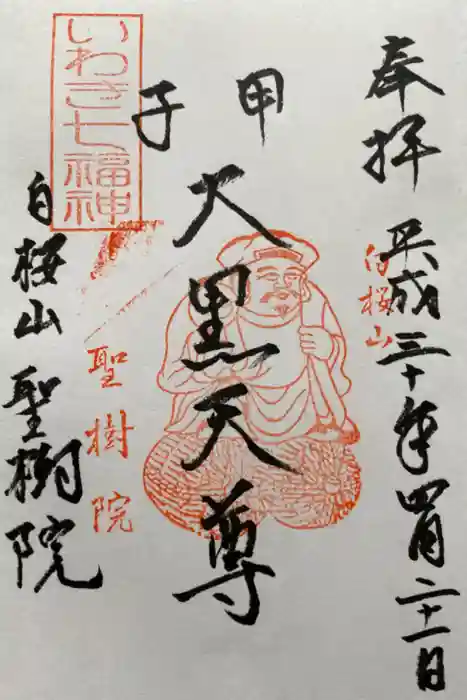 奉拝
平成三十年四月二十一日
白桜山
甲子
大黒天尊
いわき七福神
聖樹院
白桜山 聖樹院